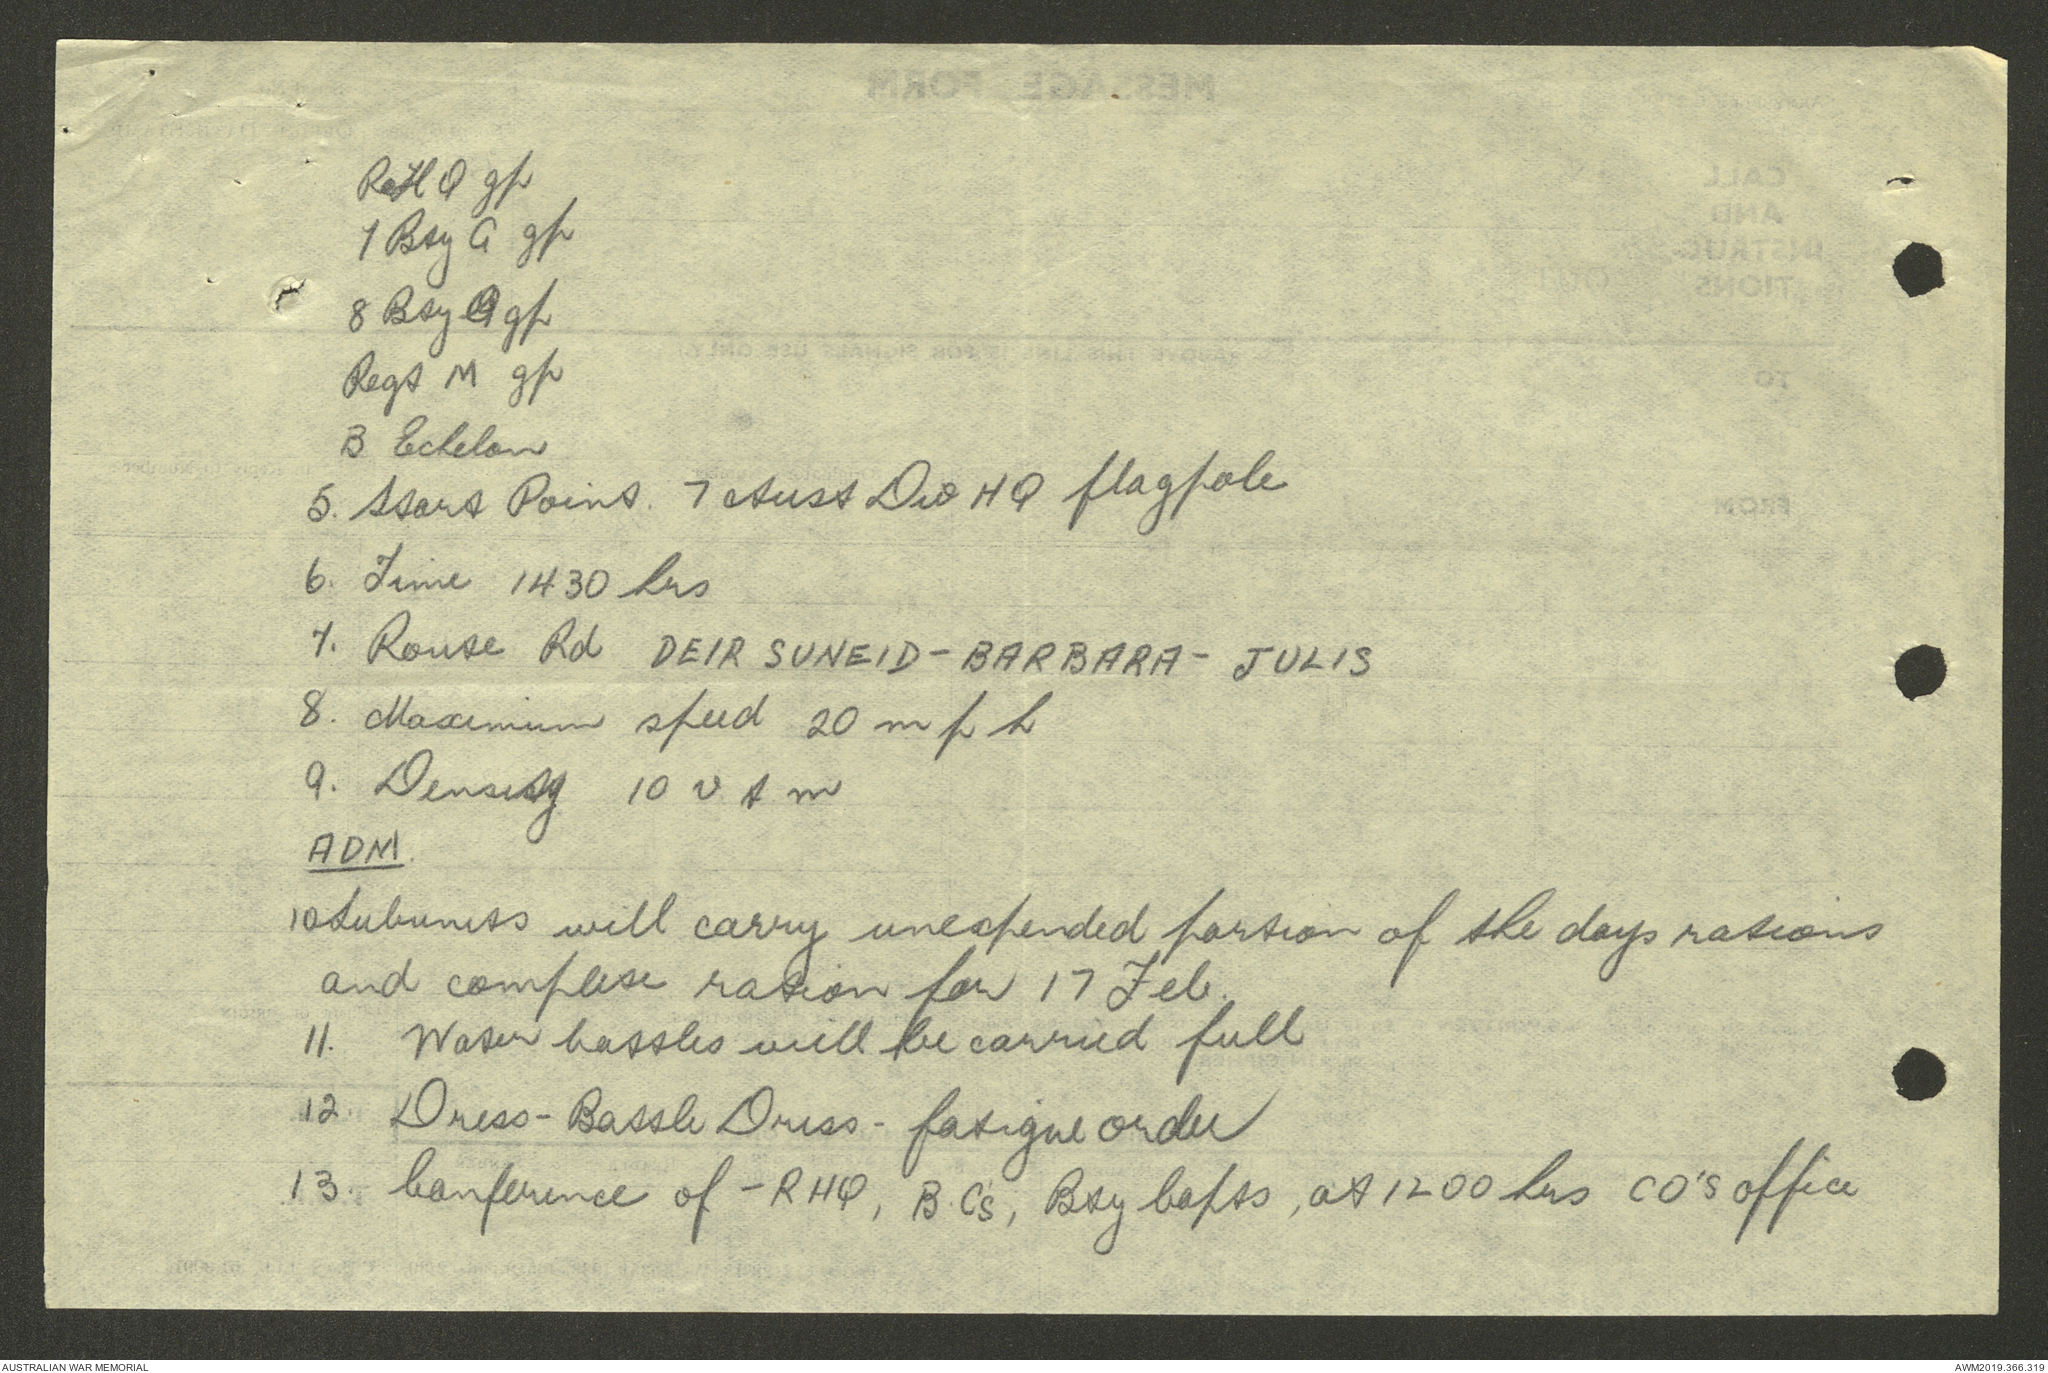 RHQ gp
7 Bty G gp
8 Bty G gp
Regt M gp
B Echelon
5. Start Point. 7 Aust Div HQ flagpole
6. Time 1430 hrs
7. Route Rd DEIR SUNEID - BARBARA - JULIS
8. Maximum speed 20 m p h
9. Density 10 v t m
ADM.
10 Subunits will carry unexpended portion of the days rations
and complete ration for 17 Feb.
11. Water bottles will be carried full
12. Dress - Battle Dress - fatigue order
13. Conference of - RHQ, B.C's, Bty Capts, at 1200 hrs CO's office
MESSAGE FORM
CALL
AND
INSTRUC-
TIONS
(ABOVE THIS LINE IS FOR SIGNALS USE ONLY)
TO
FROM
AUSTRALIAN WAR MEMORIAL
AWM2019.366.319